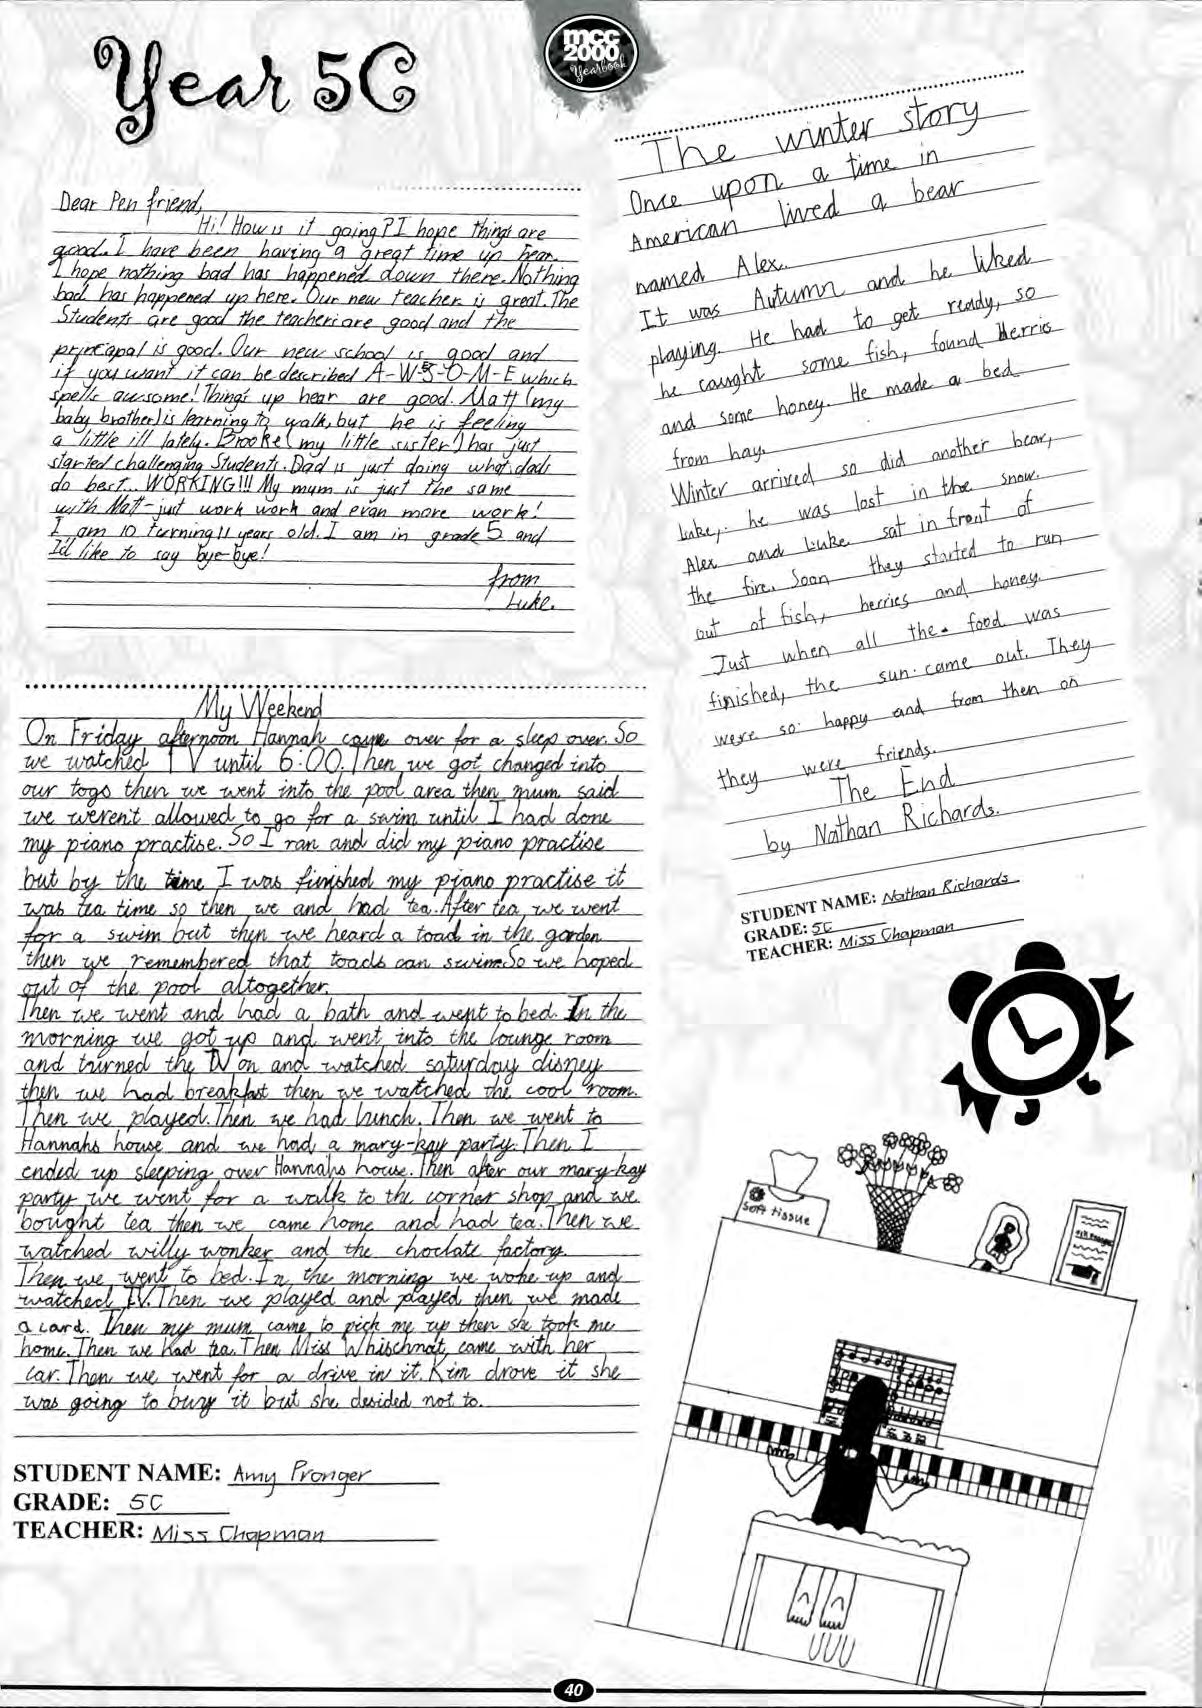 Year 5C
mcc
2000
Yearbook
Dear Pen friend,
Hi! How is it going? I hope things are
good. I have been having a great time up hear.
I hope nothing bad has happened down there. Nothing
bad has happened up here. Our new teacher is great. The
Students are good the teachers are good and the
principal is good. Our new school is good and
if you want it can be described A-W-S-O-M-E which
spells awsome! Things up hear are good. Matt (my
baby brother) is learning to walk, but he is feeling
a little ill lately. Brooke (my little sister) has just
started challenging Students. Dad is just doing what dads
do best... WORKING!!! My mum is just the same
with Matt-just work work and evan more work!
I am 10 turning 11 years old. I am in grade 5 and
I'd like to say bye-bye!
from
Luke.
The winter story
Once upon a time in
American lived a bear
named Alex.
It was Autumn and he liked
playing. He had to get ready, so
he caught some fish, found berries
and some honey. He made a bed
from hay.
Winter arrived so did another bear,
Luke, he was lost in the snow.
Alex and Luke sat in front of
the fire. Soon they started to run
out of fish, berries and honey.
Just when all the food was
finished, the sun came out. They
were so happy and from then on
they were friends.
The End
by Nathan Richards.
STUDENT NAME: Nathan Richards
GRADE: 5C
TEACHER: Miss Chapman
My Weekend
On Friday afternoon Hannah came over for a sleep over. So
we watched TV until 6:00. Then we got changed into
our togs then we went into the pool area then mum said
we weren't allowed to go for a swim until I had done
my piano practise. So I ran and did my piano practise
but by the time I was finished my piano practise it
was tea time so then we and had tea. After tea we went
for a swim but then we heard a toad in the garden
then we remembered that toads can swim. So we hoped
out of the pool altogether.
Then we went and had a bath and went to bed. In the
morning we got up and went into the lounge room
and turned the TV on and watched saturday disney
then we had breakfast then we watched the cool room.
Then we played. Then we had lunch. Then we went to
Hannahs house and we had a mary-kay party. Then I
ended up sleeping over Hannahs house. Then after our mary-kay
party we went for a walk to the corner shop and we
bought tea then we came home and had tea. Then we
watched willy wonker and the choclate factory.
Then we went to bed. In the morning we woke up and
watched TV. Then we played and played then we made
a card. Then my mum came to pick me up then she took me
home. Then we had tea. Then Miss Whischnat came with her
car. Then we went for a drive in it. Kim drove it she
was going to buy it but she desided not to.
STUDENT NAME: Amy Pronger
GRADE: 5C
TEACHER: Miss Chapman
Soft tissue
40